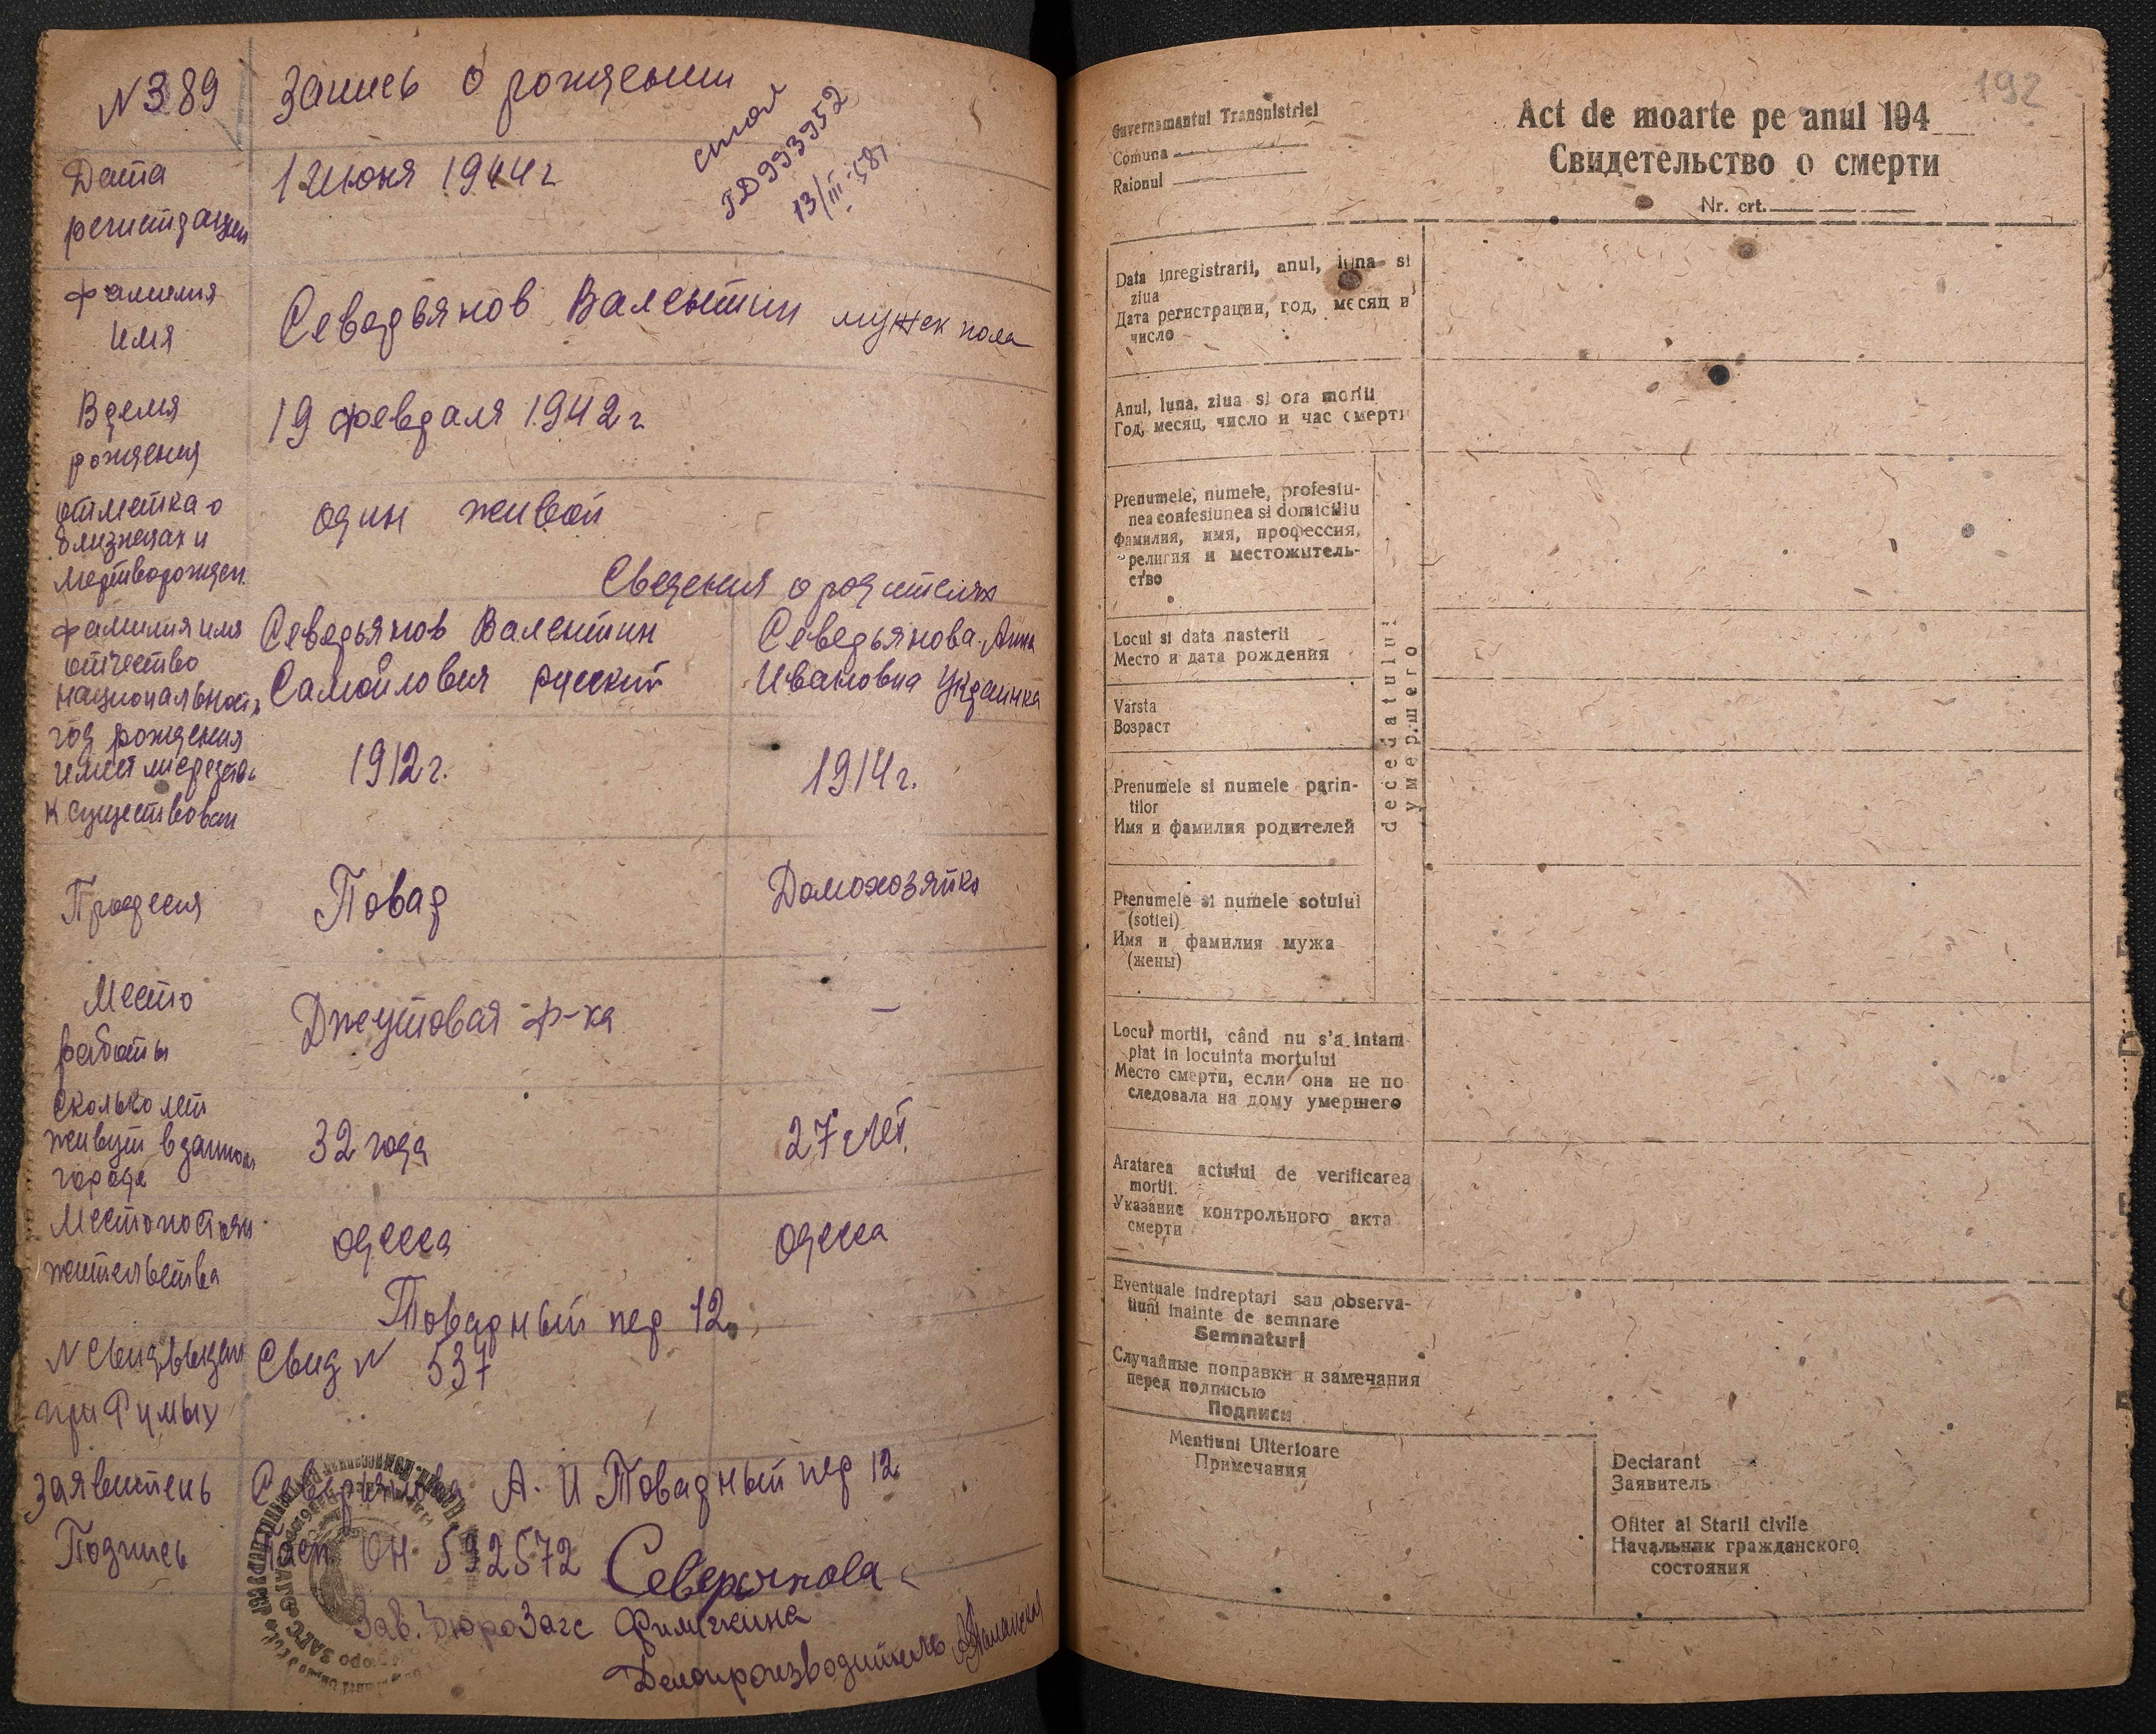 N 389 Запись о рождении
стол
ГД 993952
13/III-58г.
Дата регистрации 1 Июня 1944 г
фамилия Имя Севедьянов Валентин мужск пола
Время рождения 19 февраля 1942 г.
отметка о близнецах и мертворожден. один живой
Сведения о родителях
фамилия имя Севедьянов Валентин Севедьянова Анна
отчество
национальность Самойлович русский Ивановна Украинка
год рождения
имеет ли средства 1912 г. 1914 г.
к существован
Професия Повар Домохозяйка
Место работы Джутовая ф-ка —
Сколько лет живут в данном города 32 года 27 лет.
Место постоян жительства одесса Одесса
Товарный пер 12.
N Свид выдан Свид N 537
при Румых
Заявитель А. И Товарный пер 12
Подпись ОН 592572
Зав. Бюро Загс
Делопроизводитель
192
Guvernamantul Transnistriei
Comuna
Raionul
Act de moarte pe anul 194
Свидетельство о смерти
Nr. crt.
Data inregistrarii, anul, luna si
ziua
Дата регистрации, год, месяц и
число
Anul, luna, ziua si ora mortii
Год, месяц, число и час смерти
Prenumele, numele, profesiu-
nea confesiunea si domiciliu
Фамилия, имя, профессия,
религия и местожитель-
ство
Locul si data nasterii
Место и дата рождения
Varsta
Возраст
Prenumele si numele parin-
tilor
Имя и фамилия родителей
Prenumele si numele sotului
(sotiei)
Имя и фамилия мужа
(жены)
decedatului
умершего
Locul mortii, când nu s'a intam
plat in locuinta mortului
Место смерти, если она не по
следовала на дому умершего
Aratarea actului de verificarea
mortii.
Указание контрольного акта
смерти
Eventuale indreptari sau observa-
tiuni inainte de semnare
Semnaturi
Случайные поправки и замечания
перед полписью
Подписи
Mentiuni Ulterioare
Примечания
Declarant
Заявитель
Ofiter al Starii civile
Начальник гражданского
состояния